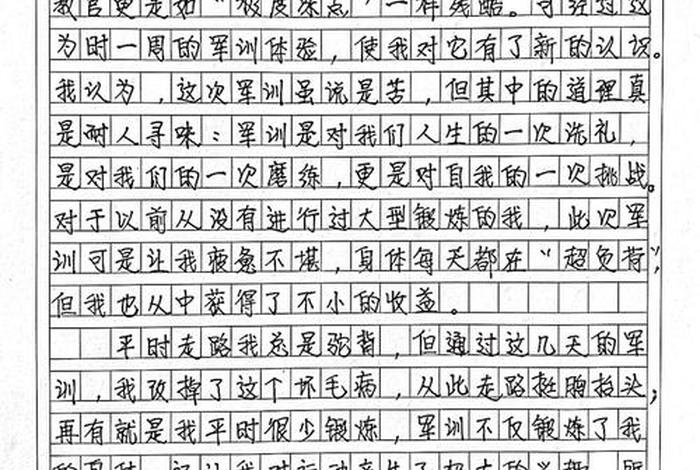 教官更是如“极度冻点”一样残酷。可经过这
为时一周的军训体验，使我对它有了新的认识。
我认为，这次军训虽说是苦，但其中的道理真
是耐人寻味：军训是对我们人生的一次洗礼，
是对我们的一次磨练，更是对自我的一次挑战。
对于以前从没有进行过大型锻炼的我，此次军
训可是让我疲惫不堪，身体每天都在“超负荷”，
但我也从中获得了不小的收益。
平时走路我总是驼背，但通过这几天的军
训，我改掉了这个坏毛病，从此走路挺胸抬头；
再有就是我平时很少锻炼，军训不仅锻炼了我